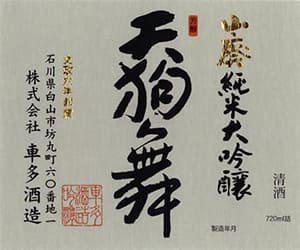 芳醇
山廃純米大吟醸
天狗舞
清酒
720ml詰
製造年月
文政六年創業
石川県白山市坊丸町六〇番地一
株式会社 車多酒造